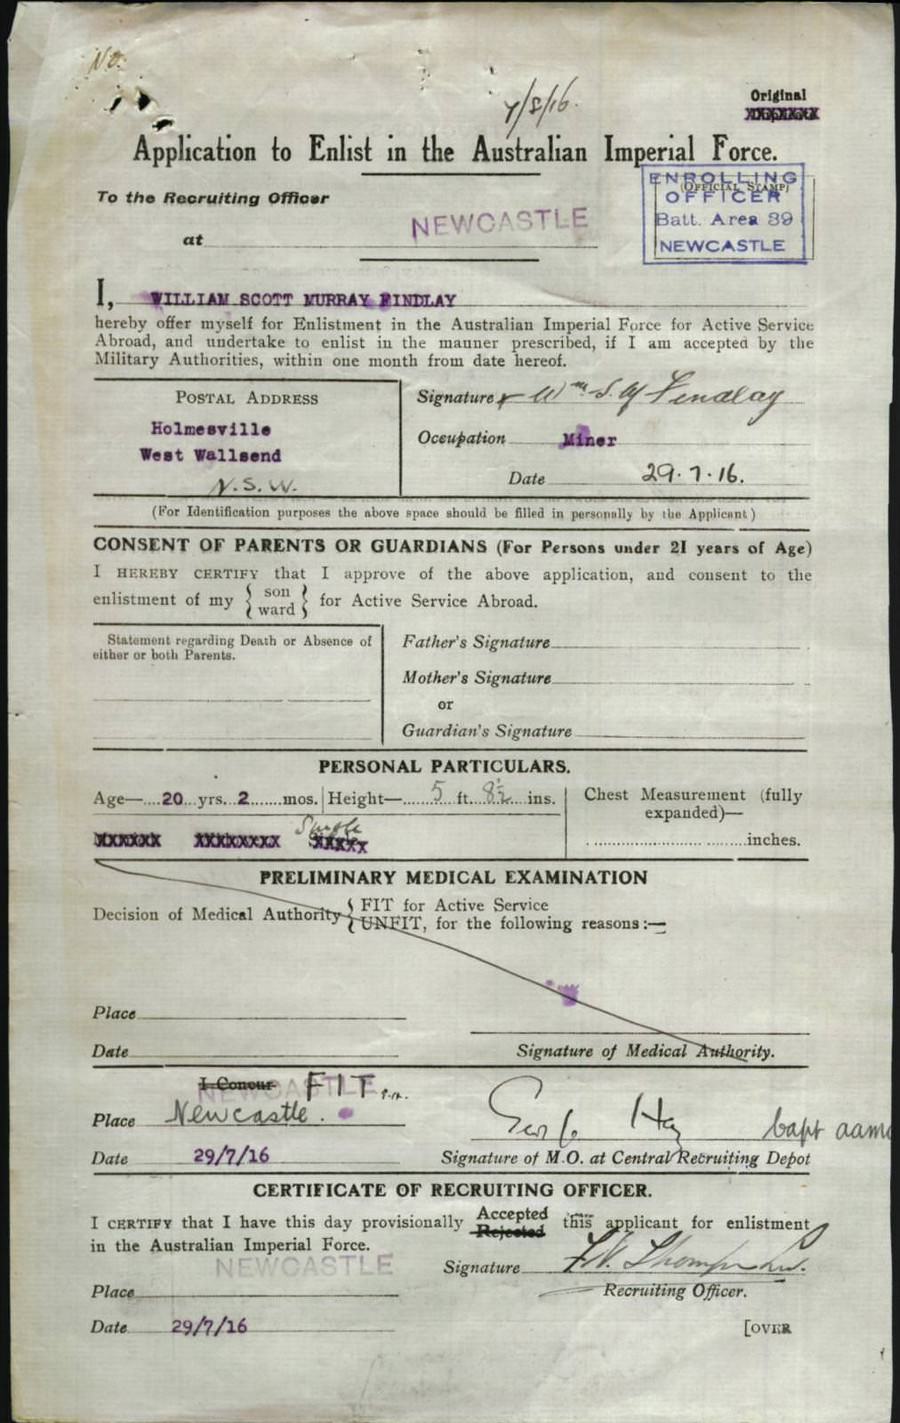 No.
7/8/16.
Original
XXXXXXX
Application to Enlist in the Australian Imperial Force.
To the Recruiting Officer
(OFFICIAL STAMP)
ENROLLING
OFFICER
Batt. Area 39
NEWCASTLE
at NEWCASTLE
I, WILLIAM SCOTT MURRAY FINDLAY
hereby offer myself for Enlistment in the Australian Imperial Force for Active Service
Abroad, and undertake to enlist in the manner prescribed, if I am accepted by the
Military Authorities, within one month from date hereof.
POSTAL ADDRESS
Holmesville
West Wallsend
N.S.W.
Signature x Wm S. M Findlay
Occupation Miner
Date 29.7.16.
(For Identification purposes the above space should be filled in personally by the Applicant)
CONSENT OF PARENTS OR GUARDIANS (For Persons under 21 years of Age)
I HEREBY CERTIFY that I approve of the above application, and consent to the
enlistment of my { son ward } for Active Service Abroad.
Statement regarding Death or Absence of
either or both Parents.
Father's Signature
Mother's Signature
or
Guardian's Signature
PERSONAL PARTICULARS.
Age—....20...yrs...2.......mos. Height—.......5...ft....8½....ins.
Single
XXXXXX XXXXXXXX XXXXX
Chest Measurement (fully
expanded)—
inches.
PRELIMINARY MEDICAL EXAMINATION
Decision of Medical Authority { FIT for Active Service
UNFIT, for the following reasons:—
Place
Date
Signature of Medical Authority.
I Concur FIT
NEWCASTLE
Place Newcastle.
Hay Capt aamc
Date 29/7/16
Signature of M.O. at Central Recruiting Depot
CERTIFICATE OF RECRUITING OFFICER.
I CERTIFY that I have this day provisionally Accepted Rejected this applicant for enlistment
in the Australian Imperial Force.
NEWCASTLE
Signature
Place
Recruiting Officer.
Date 29/7/16
[OVER